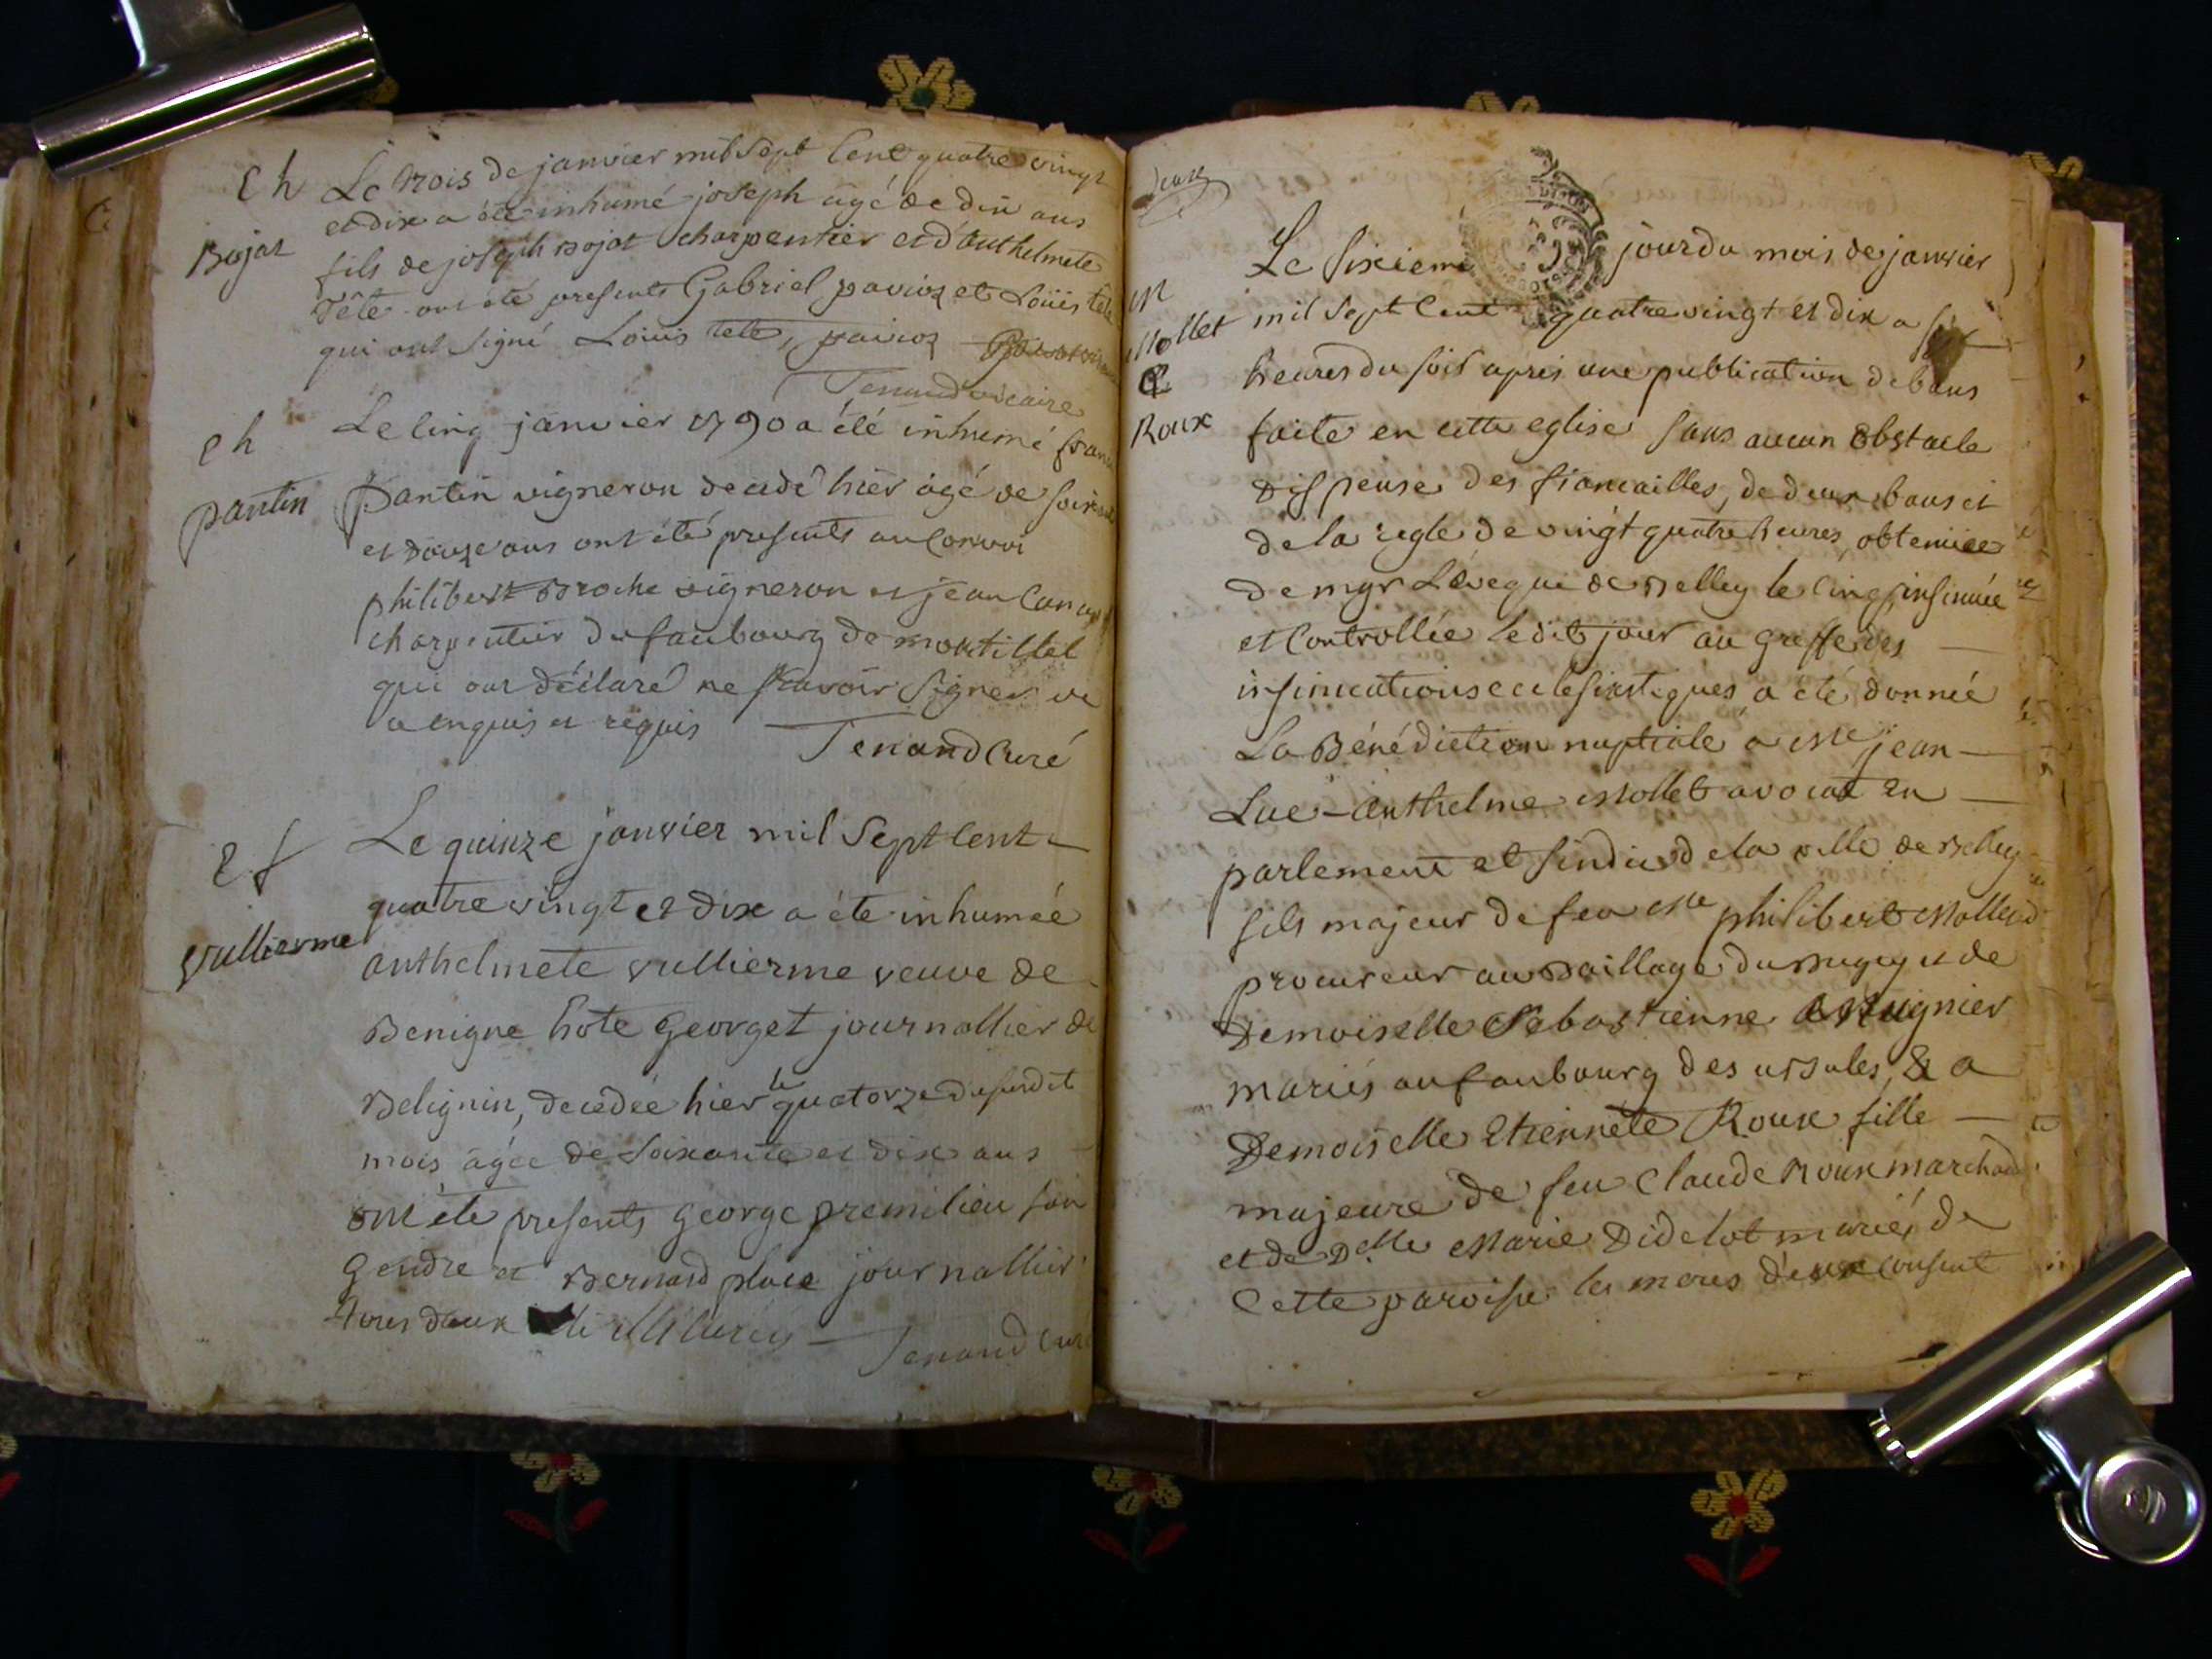 Eh
Bojat
Le trois de janvier mil sept cent quatre vingt
et dix a été inhumé joseph agé de dix ans
fils de joseph Bojat charpentier et d'anthelmete
Tête ont été presents Gabriel pavioz et Loüis tête
qui ont signé Louis tete, pavioz
Tenand vicaire
Eh
pantin
Le cinq janvier 1790 a été inhumé
Pantin vigneron decedé hier agé de
et douze ans ont été presents au convoi
philibert Broche vigneron et jean
charpentier du faubourg de montillet
qui ont déclaré ne scavoir signer de
ce enquis et requis Tenand Curé
Ef
vullierme
Le quinze janvier mil sept cent
quatre vingt et dix a été inhumée
anthelmete vullierme veuve de
Benigne hote georget journallier de
Belignin, decedée hier le quatorze dususdit
mois agée de soixante et dix ans
ont été presents george premilieu son
gendre et Bernard place journallier
Tenand curé
M
Mollet
&
Roux
Le sixieme jour du mois de janvier
mil sept cent quatre vingt et dix a six
heures du soir après une publication de bans
faite en cette eglise sans aucun obstacle
dispense des fiancailles, de deux bans et
de la regle de vingt quatre heures obtenüe
de mgr L'éveque de Belley le cinq, insinuée
et Controllée ledit jour au greffe des
insinuations ecclesiastiques, a été donnée
La Bénédiction nuptiale a Me jean
Luc-anthelme Mollet avocat en
parlement et sindic de la ville de Belley
fils majeur de feu Me philibert Mollet
procureur au Baillage du Bugey et de
Demoiselle Sebastienne Mugnier
mariés au faubourg des ursules, & a
Demoiselle Etiennete Roux fille
majeure de feu Claude Roux marchand
et de Delle Marie Didelot mariés de
Cette paroisse les meres d'eux consent